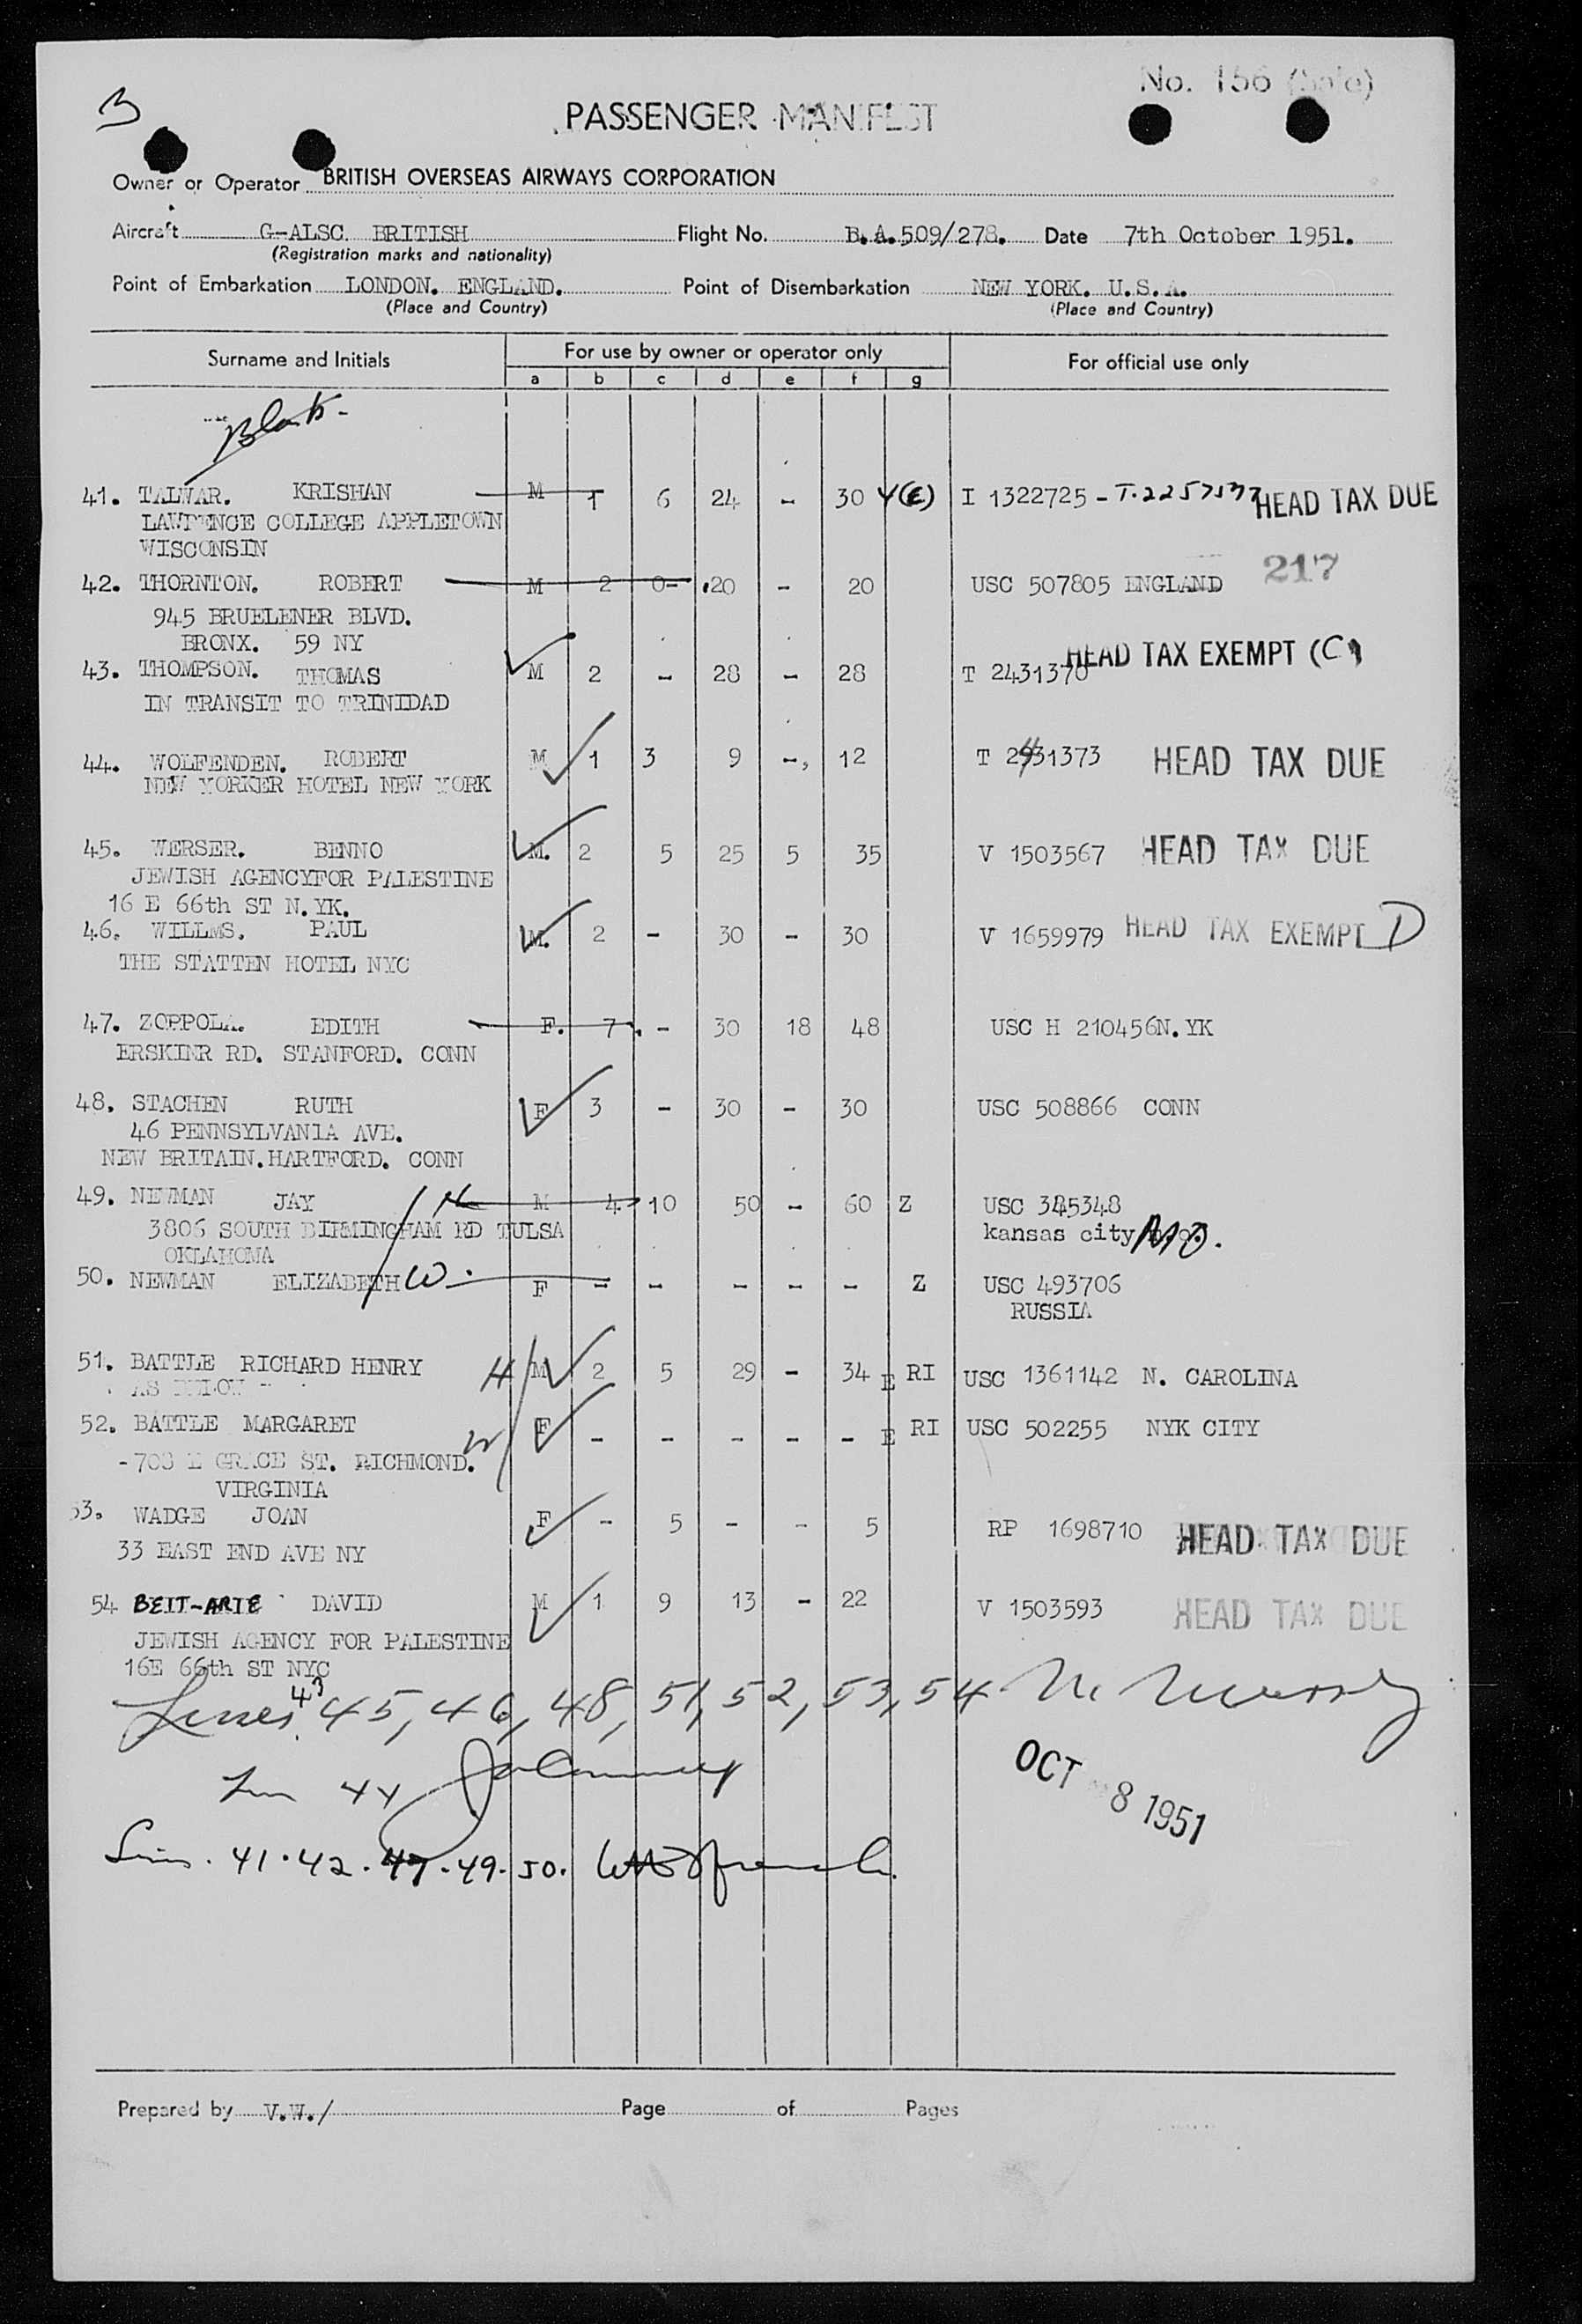 No. 156
3
PASSENGER MANIFEST
Owner or Operator BRITISH OVERSEAS AIRWAYS CORPORATION
Aircraft G-ALSC. BRITISH Flight No. B.A.509/278. Date 7th October 1951.
(Registration marks and nationality)
Point of Embarkation LONDON. ENGLAND. Point of Disembarkation NEW YORK. U.S.A.
(Place and Country) (Place and Country)
Surname and Initials For use by owner or operator only For official use only
a b c d e f g
41. TALWAR. KRISHAN M 1 6 24 - 30 I 1322725 - T.2257537 HEAD TAX DUE
LAWRENCE COLLEGE APPLETOWN
WISCONSIN
217
42. THORNTON. ROBERT M 2 0- 20 - 20 USC 507805 ENGLAND
945 BRUELENER BLVD.
BRONX. 59 NY
HEAD TAX EXEMPT (C)
43. THOMPSON. THOMAS M 2 - 28 - 28 T 2431370
IN TRANSIT TO TRINIDAD
44. WOLFENDEN. ROBERT M 1 3 9 -, 12 T 2431373 HEAD TAX DUE
NEW YORKER HOTEL NEW YORK
45. WERSER. BENNO M. 2 5 25 5 35 V 1503567 HEAD TAX DUE
JEWISH AGENCYFOR PALESTINE
16 E 66th ST N.YK.
46. WILLMS. PAUL M. 2 - 30 - 30 V 1659979 HEAD TAX EXEMPT D
THE STATTEN HOTEL NYC
47. ZOPPOLA. EDITH F. 7 - 30 18 48 USC H 210456N.YK
ERSKINR RD. STANFORD. CONN
48. STACHEN RUTH F 3 - 30 - 30 USC 508866 CONN
46 PENNSYLVANIA AVE.
NEW BRITAIN.HARTFORD. CONN
49. NEWMAN JAY H M 4 10 50 - 60 Z USC 345348
3806 SOUTH BIRMINGHAM RD TULSA kansas city MO.
OKLAHOMA
50. NEWMAN ELIZABETH W. F - - - - - Z USC 493706
RUSSIA
51. BATTLE RICHARD HENRY H M 2 5 29 - 34 E RI USC 1361142 N. CAROLINA
AS BELOW -
52. BATTLE MARGARET W F - - - - - E RI USC 502255 NYK CITY
-708 E GRACE ST. RICHMOND.
VIRGINIA
53. WADGE JOAN F - 5 - - 5 RP 1698710 HEAD TAX DUE
33 EAST END AVE NY
54 BEIT-ARIE DAVID M 1 9 13 - 22 V 1503593 HEAD TAX DUE
JEWISH AGENCY FOR PALESTINE
16E 66th ST NYC
Lines 43 45, 46, 48, 51, 52, 53, 54
44
OCT 8 1951
Lines. 41.42.47.49.50.
Prepared by V.W./ Page of Pages